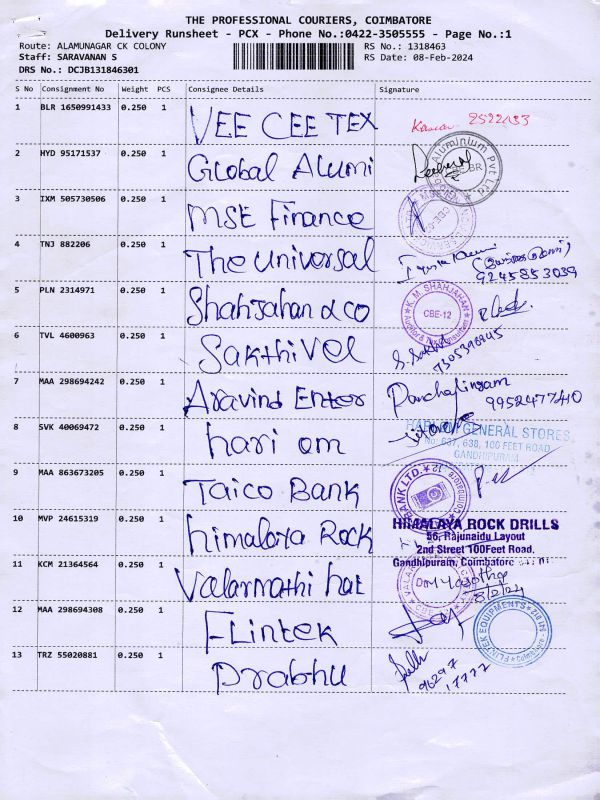 THE PROFESSIONAL COURIERS, COIMBATORE
Delivery Runsheet - PCX - Phone No.:0422-3505555 - Page No.:1
Route: ALAMUNAGAR CK COLONY
RS No.: 1318463
Staff: SARAVANAN S
RS Date: 08-Feb-2024
DRS No.: DCJB131846301
S No Consignment No Weight PCS Consignee Details Signature
1 BLR 1650991433 0.250 1 VEE CEE TEX
2 HYD 95171537 0.250 1 Global Alumi
Aluminium Pvt Ltd
3 IXM 505730506 0.250 1 MSE Finance
4 TNJ 882206 0.250 1 The Universal
9245853039
5 PLN 2314971 0.250 1 Shahjahan & co
K.M. SHAHJAHAN
CBE-12
6 TVL 4600963 0.250 1 Sakthivel
7 MAA 298694242 0.250 1 Aravind Enter Panchalingam
9952477410
8 SVK 40069472 0.250 1 hari om
GENERAL STORES,
No: 637, 638, 100 FEET ROAD,
GANDHIPURAM
9 MAA 863673205 0.250 1 Taico Bank
BANK LTD.
10 MVP 24615319 0.250 1 himalaya Rock
HIMALAYA ROCK DRILLS
56, Rajunaidu Layout
2nd Street 100Feet Road,
Gandhipuram, Coimbatore
11 KCM 21364564 0.250 1 Valarmathi hat
8/2/24
12 MAA 298694308 0.250 1 FLintek
FLINTEK EQUIPMENTS
13 TRZ 55020881 0.250 1 Prabhu
96297
17777